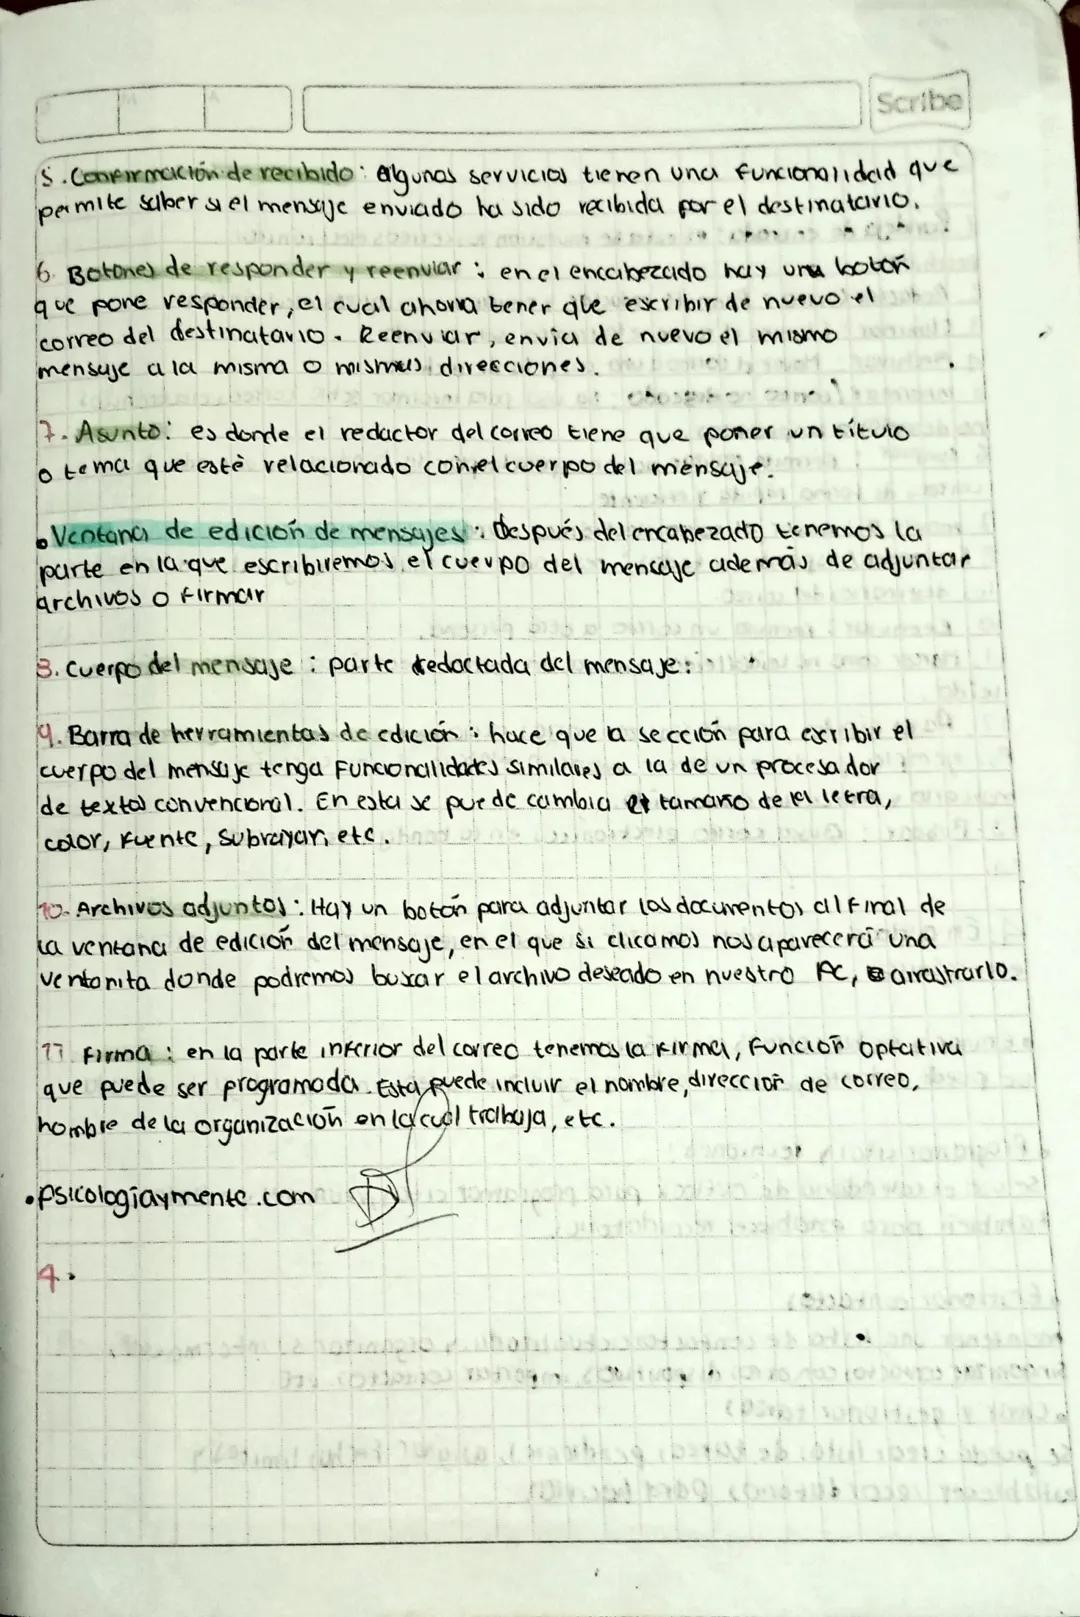 Scribe
5. Confirmación de recibido: Algunos servicios tienen una funcionalidad que
permite saber si el mensaje enviado ha sido recibida por el destinatario.
6. Botones de responder y reenviar: en el encabezado hay una botón
que pone responder, el cual ahorra tener que escribir de nuevo el
correo del destinatario. Reenviar, envía de nuevo el mismo
mensaje a la misma o mismas direcciones.
7. Asunto: es donde el redactor del correo tiene que poner un título
o tema que esté relacionado con el cuerpo del mensaje.
• Ventana de edición de mensajes: después del encabezado tenemos la
parte en la que escribiremos el cuerpo del mensaje además de adjuntar
archivos o firmar
8. Cuerpo del mensaje: parte redactada del mensaje.
9. Barra de herramientas de edición: hace que la sección para escribir el
cuerpo del mensaje tenga funcionalidades similares a la de un procesador
de textos convencional. En esta se puede cambia el tamaño de la letra,
color, fuente, subrayar, etc.
10. Archivos adjuntos: Hay un botón para adjuntar los documentos al final de
la ventana de edición del mensaje, en el que si clicamos nos aparecerá una
ventanita donde podremos buscar el archivo deseado en nuestro PC, o arrastrarlo.
11 Firma: en la parte inferior del correo tenemos la firma, función optativa
que puede ser programada. Esta puede incluir el nombre, dirección de correo,
nombre de la organización en la cual trabaja, etc.
• psicologíaymente.com
4.